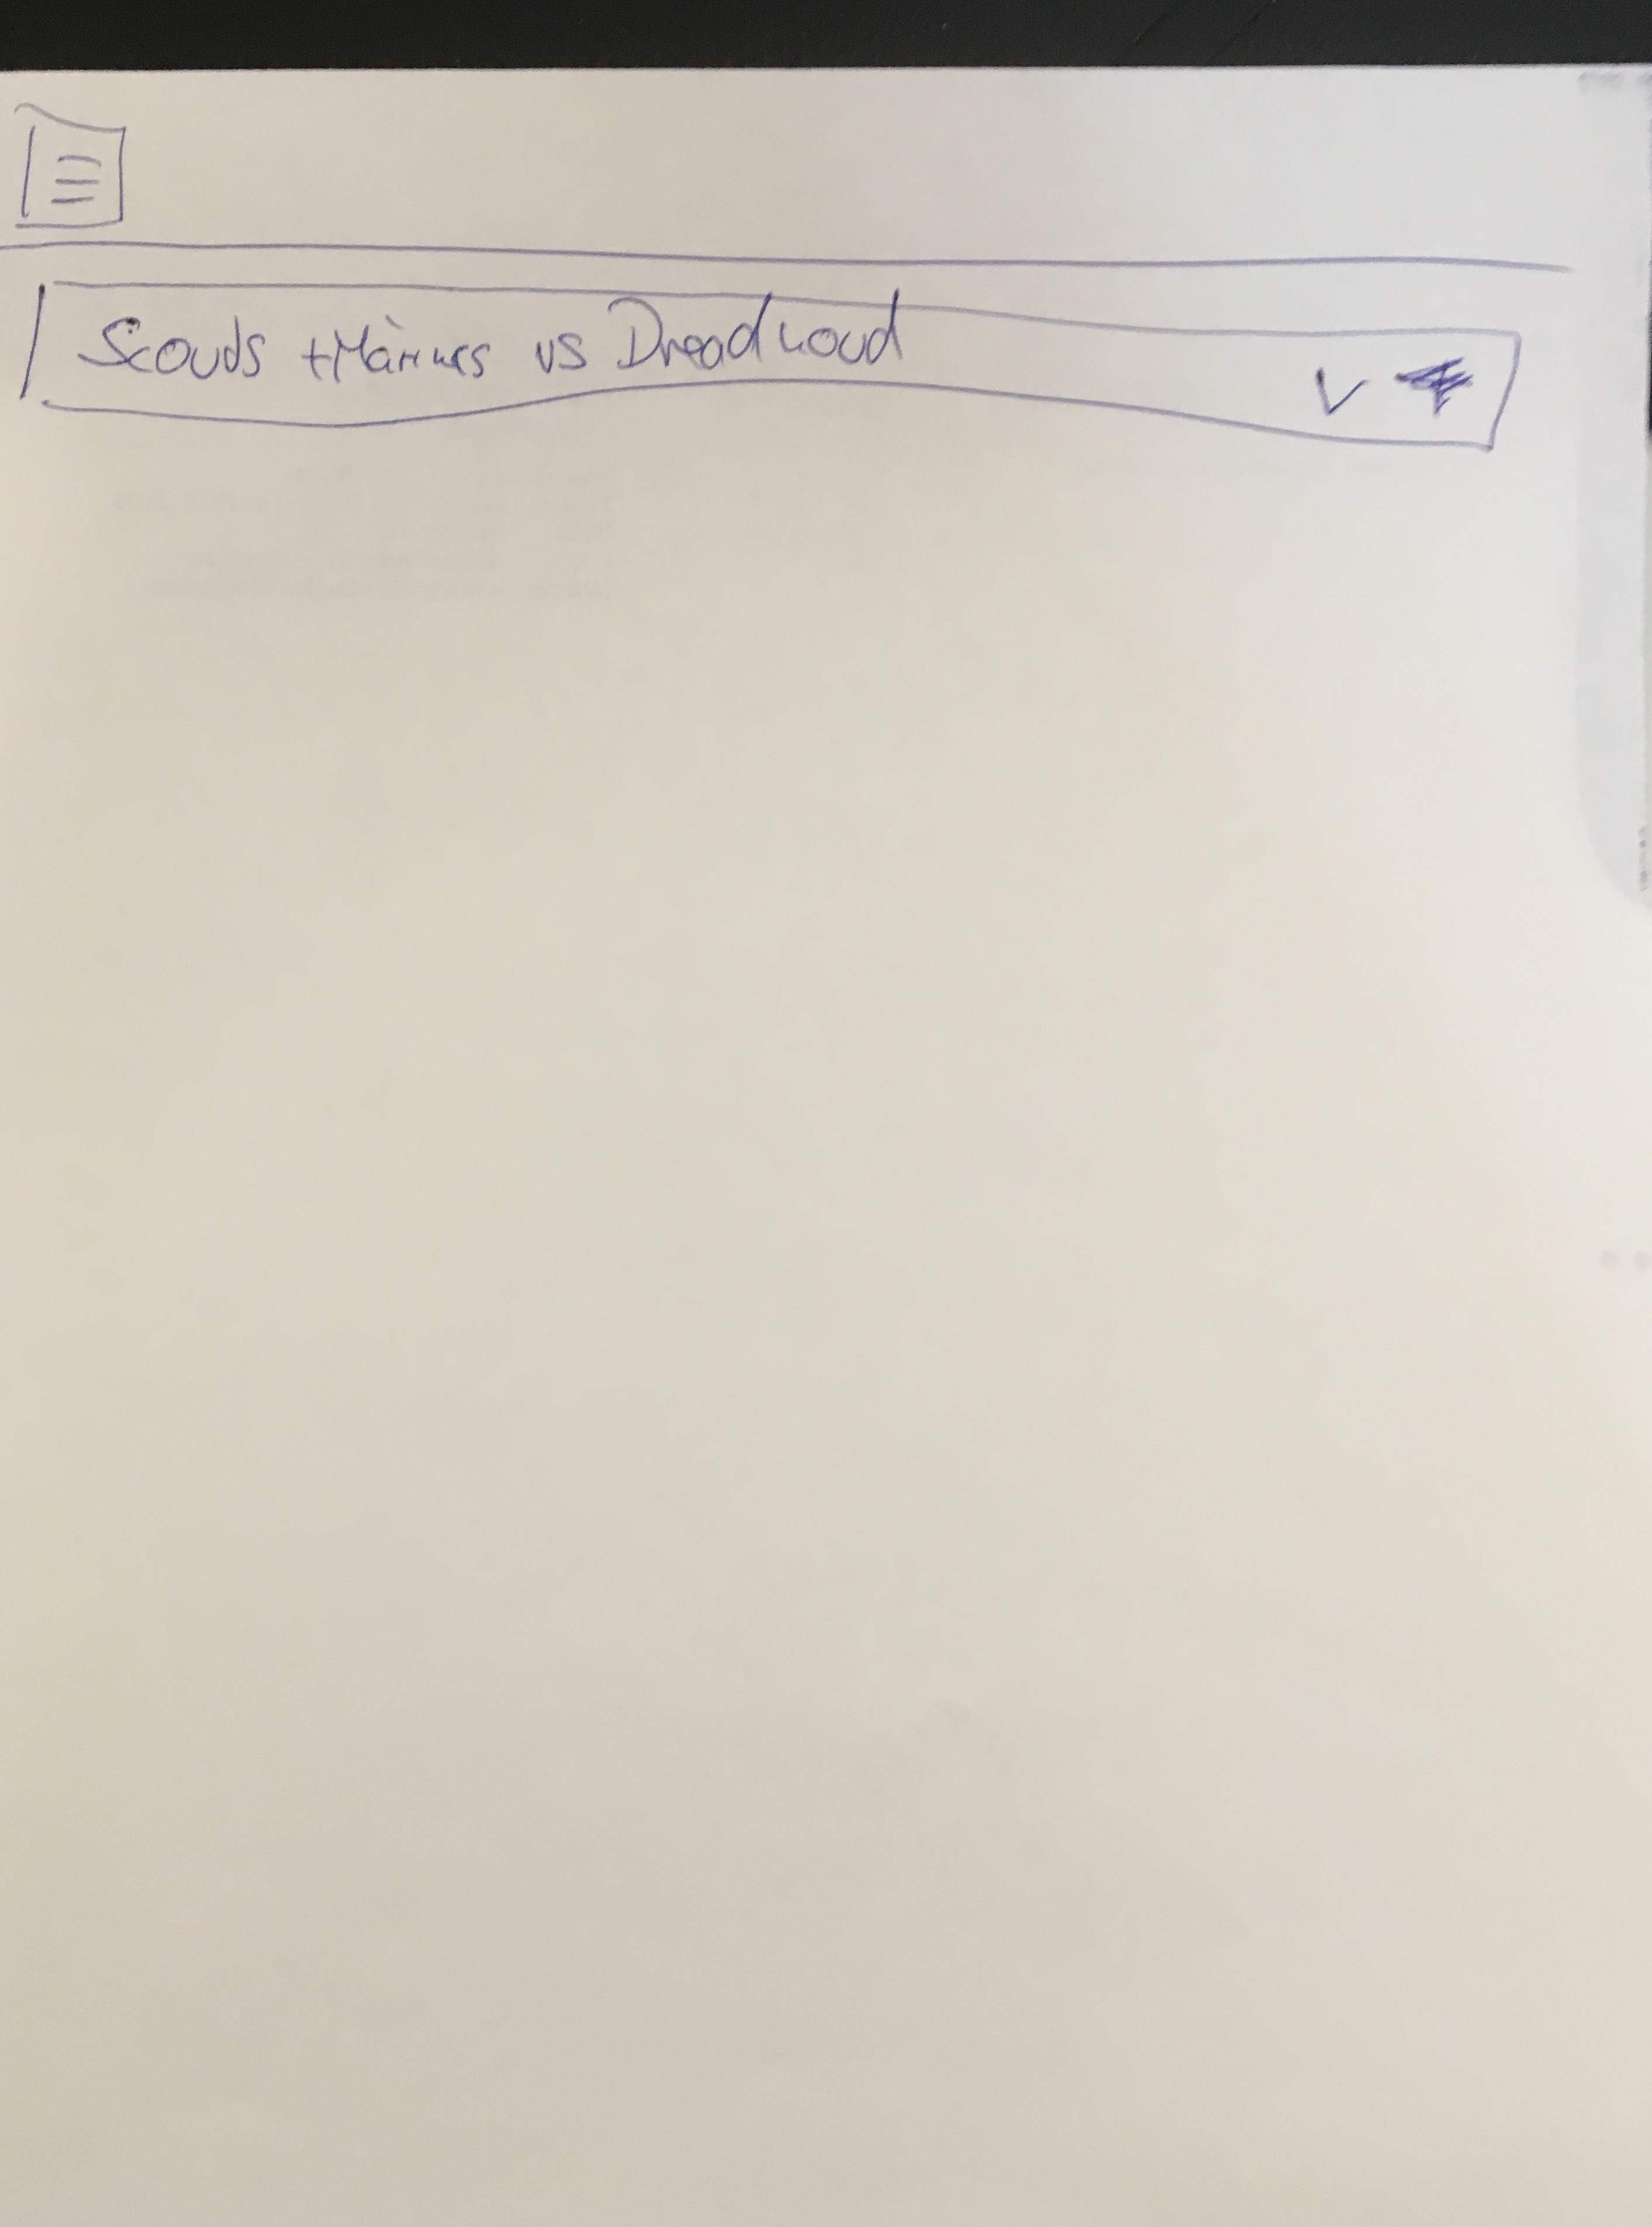 Scouts + Marines vs Dreadnoud